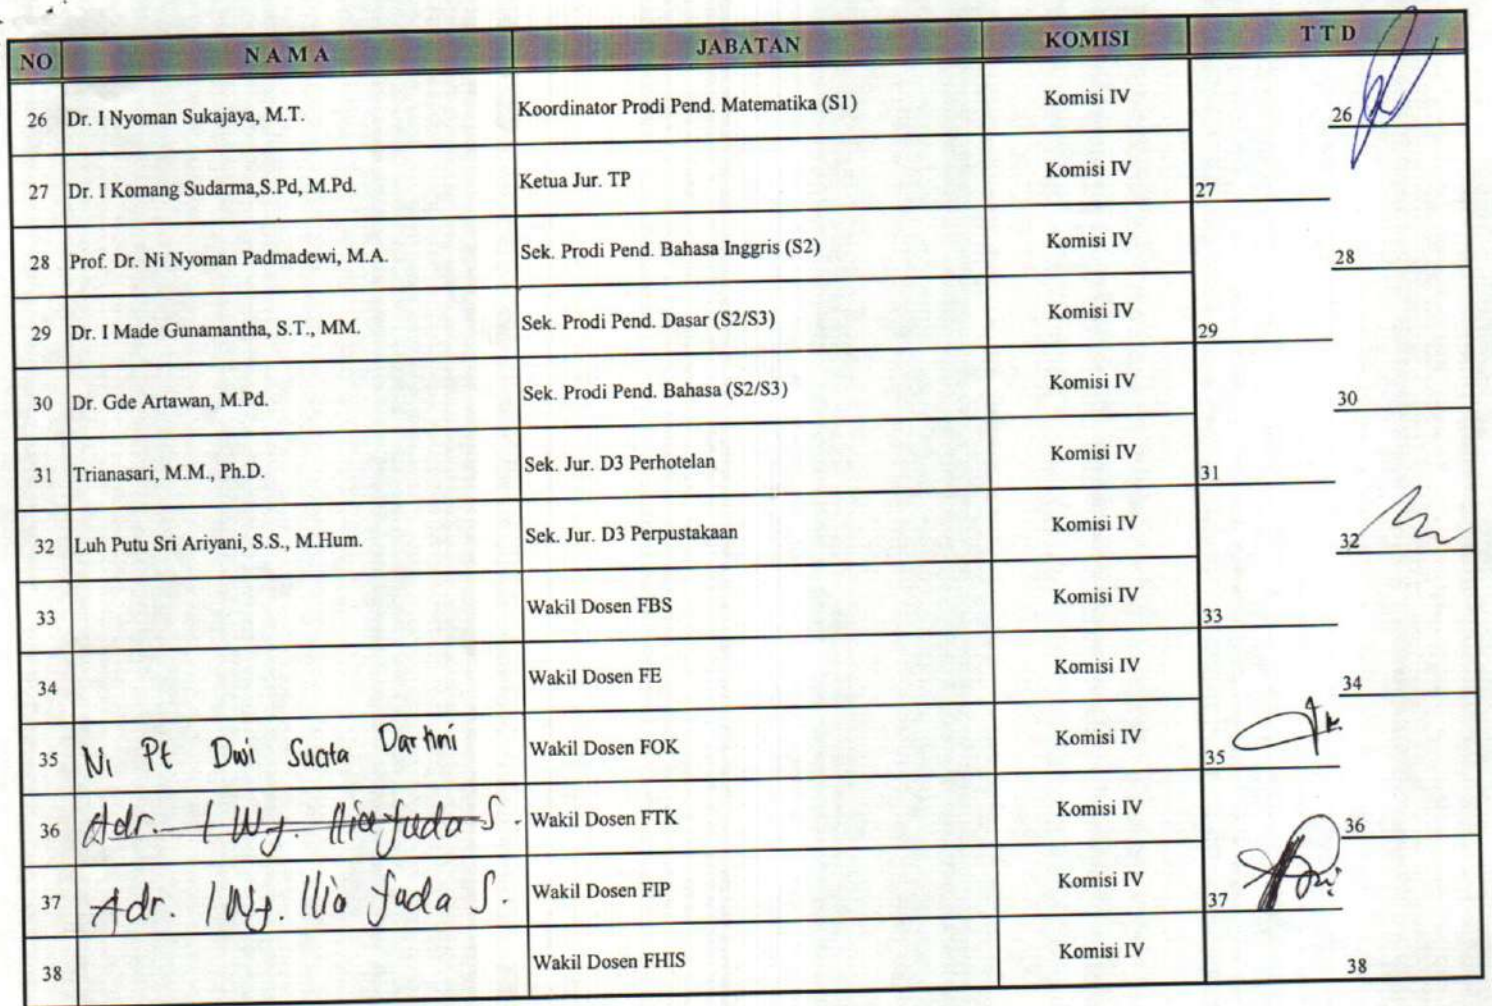 NO NAMA JABATAN KOMISI TTD
26 Dr. I Nyoman Sukajaya, M.T. Koordinator Prodi Pend. Matematika (S1) Komisi IV 26
27 Dr. I Komang Sudarma,S.Pd, M.Pd. Ketua Jur. TP Komisi IV 27
28 Prof. Dr. Ni Nyoman Padmadewi, M.A. Sek. Prodi Pend. Bahasa Inggris (S2) Komisi IV 28
29 Dr. I Made Gunamantha, S.T., MM. Sek. Prodi Pend. Dasar (S2/S3) Komisi IV 29
30 Dr. Gde Artawan, M.Pd. Sek. Prodi Pend. Bahasa (S2/S3) Komisi IV 30
31 Trianasari, M.M., Ph.D. Sek. Jur. D3 Perhotelan Komisi IV 31
32 Luh Putu Sri Ariyani, S.S., M.Hum. Sek. Jur. D3 Perpustakaan Komisi IV 32
33 Wakil Dosen FBS Komisi IV 33
34 Wakil Dosen FE Komisi IV 34
35 Ni Pt Dwi Sucita Dartini Wakil Dosen FOK Komisi IV 35
36 Adr. I Wy. Ilia Yuda S. Wakil Dosen FTK Komisi IV 36
37 Adr. I Wy. Ilia Yuda S. Wakil Dosen FIP Komisi IV 37
38 Wakil Dosen FHIS Komisi IV 38